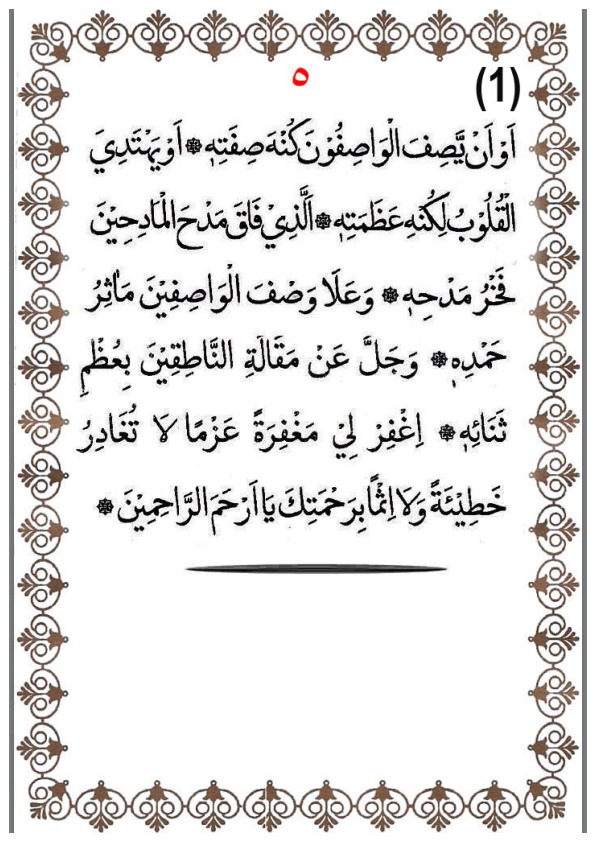 ٥
(1)
اَوْ اَنْ يَّصِفَ الْوَاصِفُوْنَ كُنْهَ صِفَتِهٖ ۞ اَوْ يَهْتَدِيَ
الْقُلُوْبُ لِكُنْهِ عَظَمَتِهٖ ۞ اَلَّذِيْ فَاقَ مَدْحَ الْمَادِحِيْنَ
فَخْرُ مَدْحِهٖ ۞ وَعَلَا وَصْفَ الْوَاصِفِيْنَ مَاٰثِرُ
حَمْدِهٖ ۞ وَجَلَّ عَنْ مَقَالَةِ النَّاطِقِيْنَ بِعُظْمِ
ثَنَائِهٖ ۞ اِغْفِرْ لِيْ مَغْفِرَةً عَزْمًا لَا تُغَادِرُ
خَطِيْئَةً وَلَا اِثْمًا بِرَحْمَتِكَ يَا اَرْحَمَ الرَّاحِمِيْنَ ۞